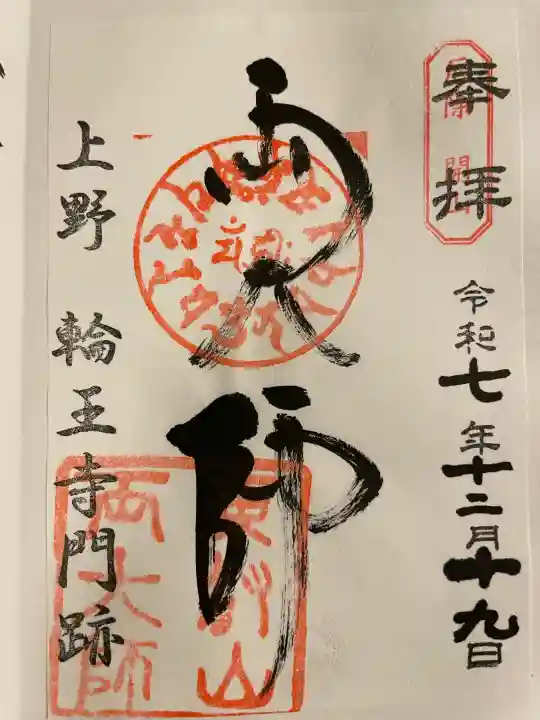 奉拝
令和七年十二月十九日
両大師
両大師
上野 輪王寺門跡